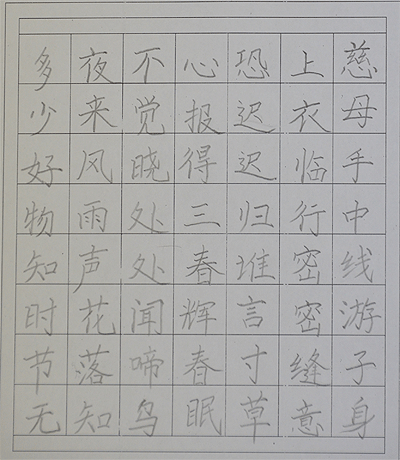 慈母手中线游子身
上衣临行密密缝意
恐迟迟归谁言寸草
心报得三春辉春眠
不觉晓处处闻啼鸟
夜来风雨声花落知
多少好物知时节无